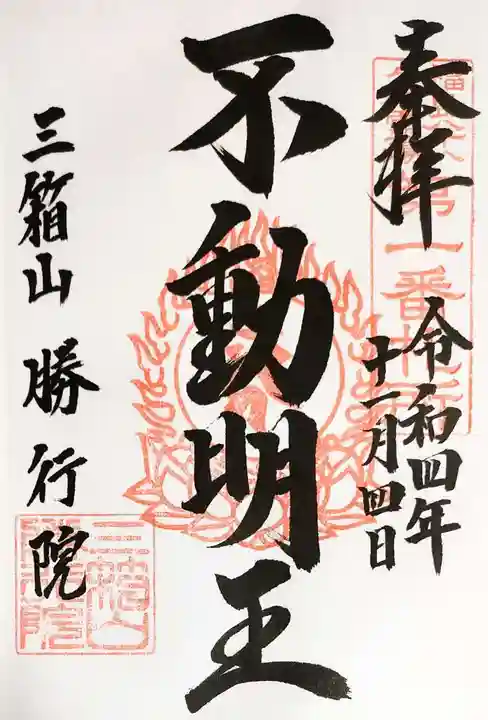 奉拝
令和四年
十一月四日
不動明王
三箱山 勝行院
第一番